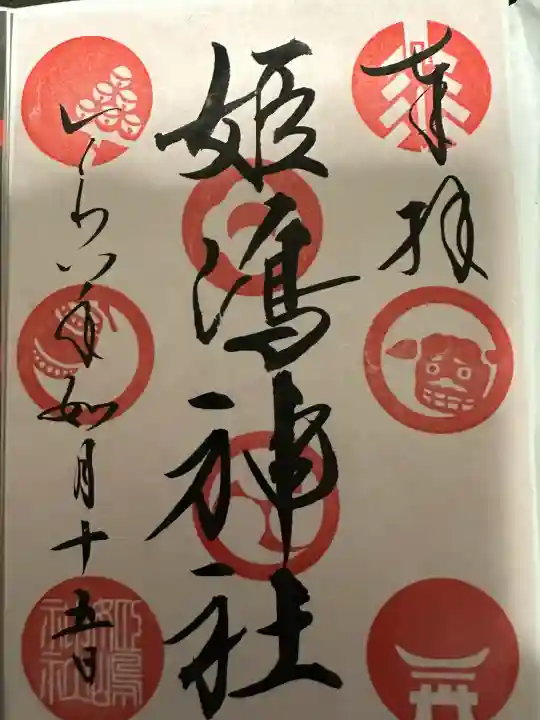 奉拝
姫嶋神社
令和八年如月十五日
姫嶋神社